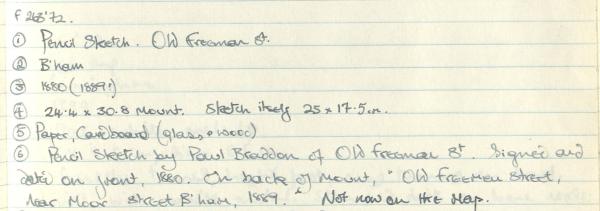 F 263'72.
① Pencil Sketch. Old Freeman St.
② B'ham
③ 1880 (1889?)
④ 24.4 x 30.8 Mount. Sketch itself 25 x 17.5cm.
⑤ Paper, Cardboard (glass, + wood)
⑥ Pencil Sketch by Paul Braddon of Old Freeman St. Signed and
date on front, 1880. On back of Mount, "Old Freeman Street,
near Moor Street B'ham, 1889." Not now on the Map.